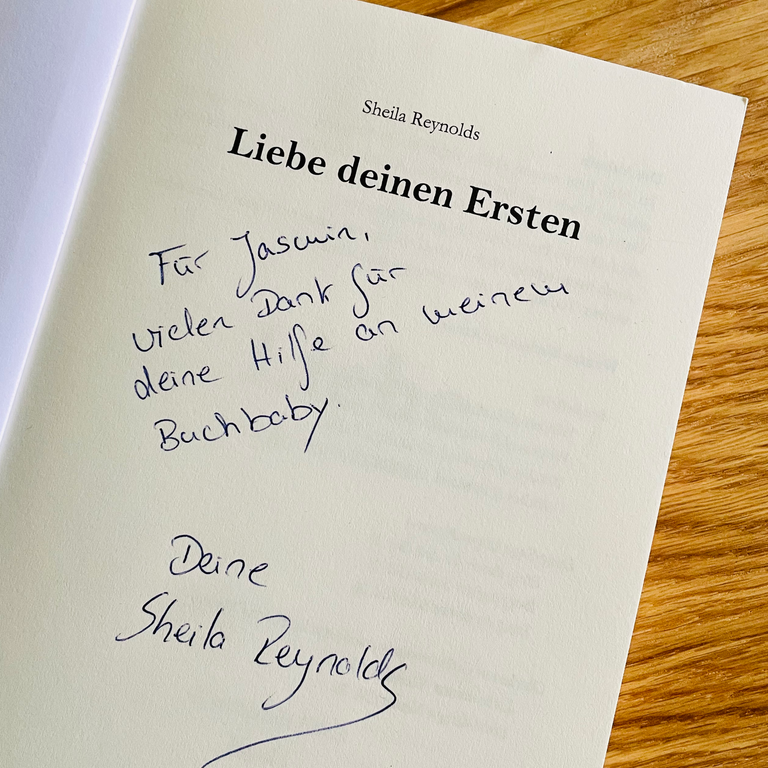 Sheila Reynolds
Liebe deinen Ersten
Für Jasmin,
vielen Dank für
deine Hilfe an meinem
Buchbaby.
Deine
Sheila Reynolds